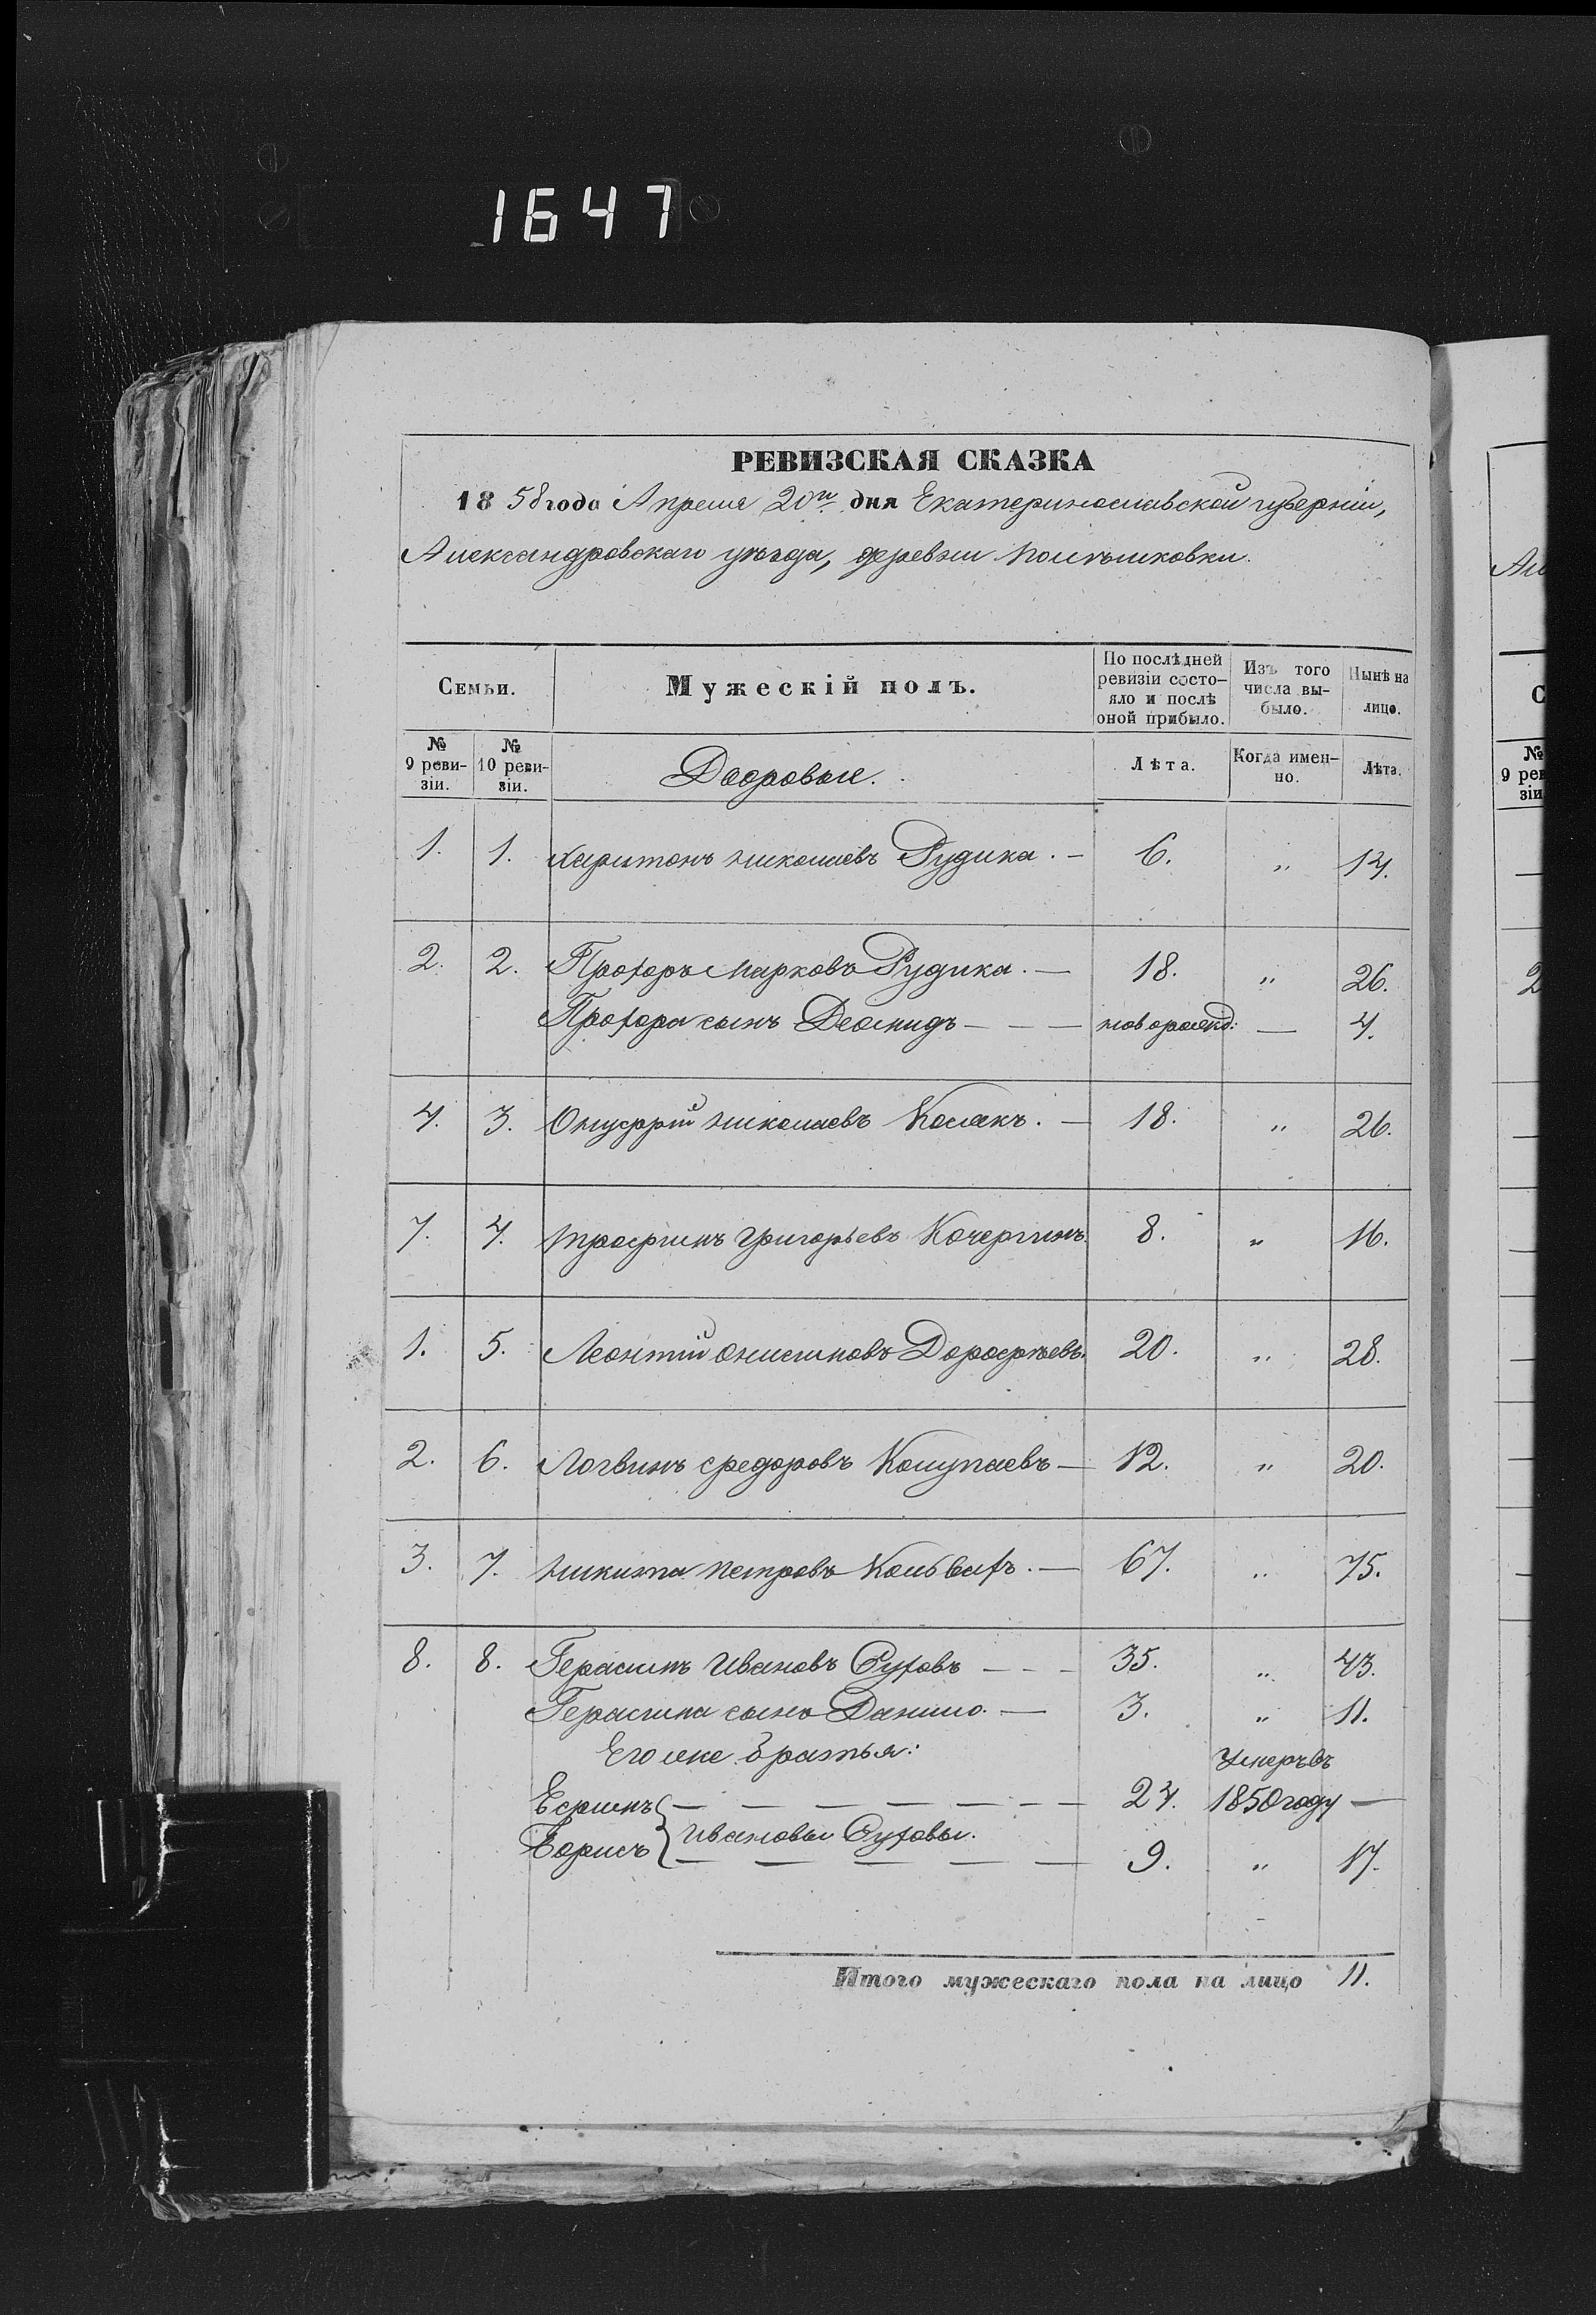 1647
РЕВИЗСКАЯ СКАЗКА
1858 года Апреля 20го дня Екатеринославской губерніи,
Александровскаго уѣзда, деревни
Семьи. Мужескій полъ. По послѣдней ревизіи состояло и послѣ оной прибыло. Изъ того числа выбыло. Нынѣ на лицо.
№ 9 ревизіи. № 10 ревизіи. Дворовые. Лѣта. Когда именно. Лѣта.
1. 1. Харитонъ Николаевъ Рудика. — 6. „ 14.
2. 2. Прохоръ Марковъ Рудика. — 18. „ 26.
Прохора сынъ Леонидъ — — — новорожд: — 4.
4. 3. Онуфрій Николаевъ — 18. „ 26.
7. 4. Трофимъ Григорьевъ Кочергинъ. 8. „ 16.
1. 5. Леонтій Онисимовъ Дорофѣевъ. 20. „ 28.
2. 6. Логвинъ Федоровъ Колупаевъ — 12. „ 20.
3. 7. Никита Петровъ — 67. „ 75.
8. 8. Герасимъ Ивановъ Суховъ — — — 35. „ 43.
Герасима сынъ Данило. — 3. „ 11.
Его же братья: Умеръ въ
Ефимъ { — — — — — — — 24. 1850 году —
Ивановы Суховы.
Борисъ — — — — — 9. „ 17.
Итого мужескаго пола на лицо 11.
Ал
С
№ 9 рев
зіи
2